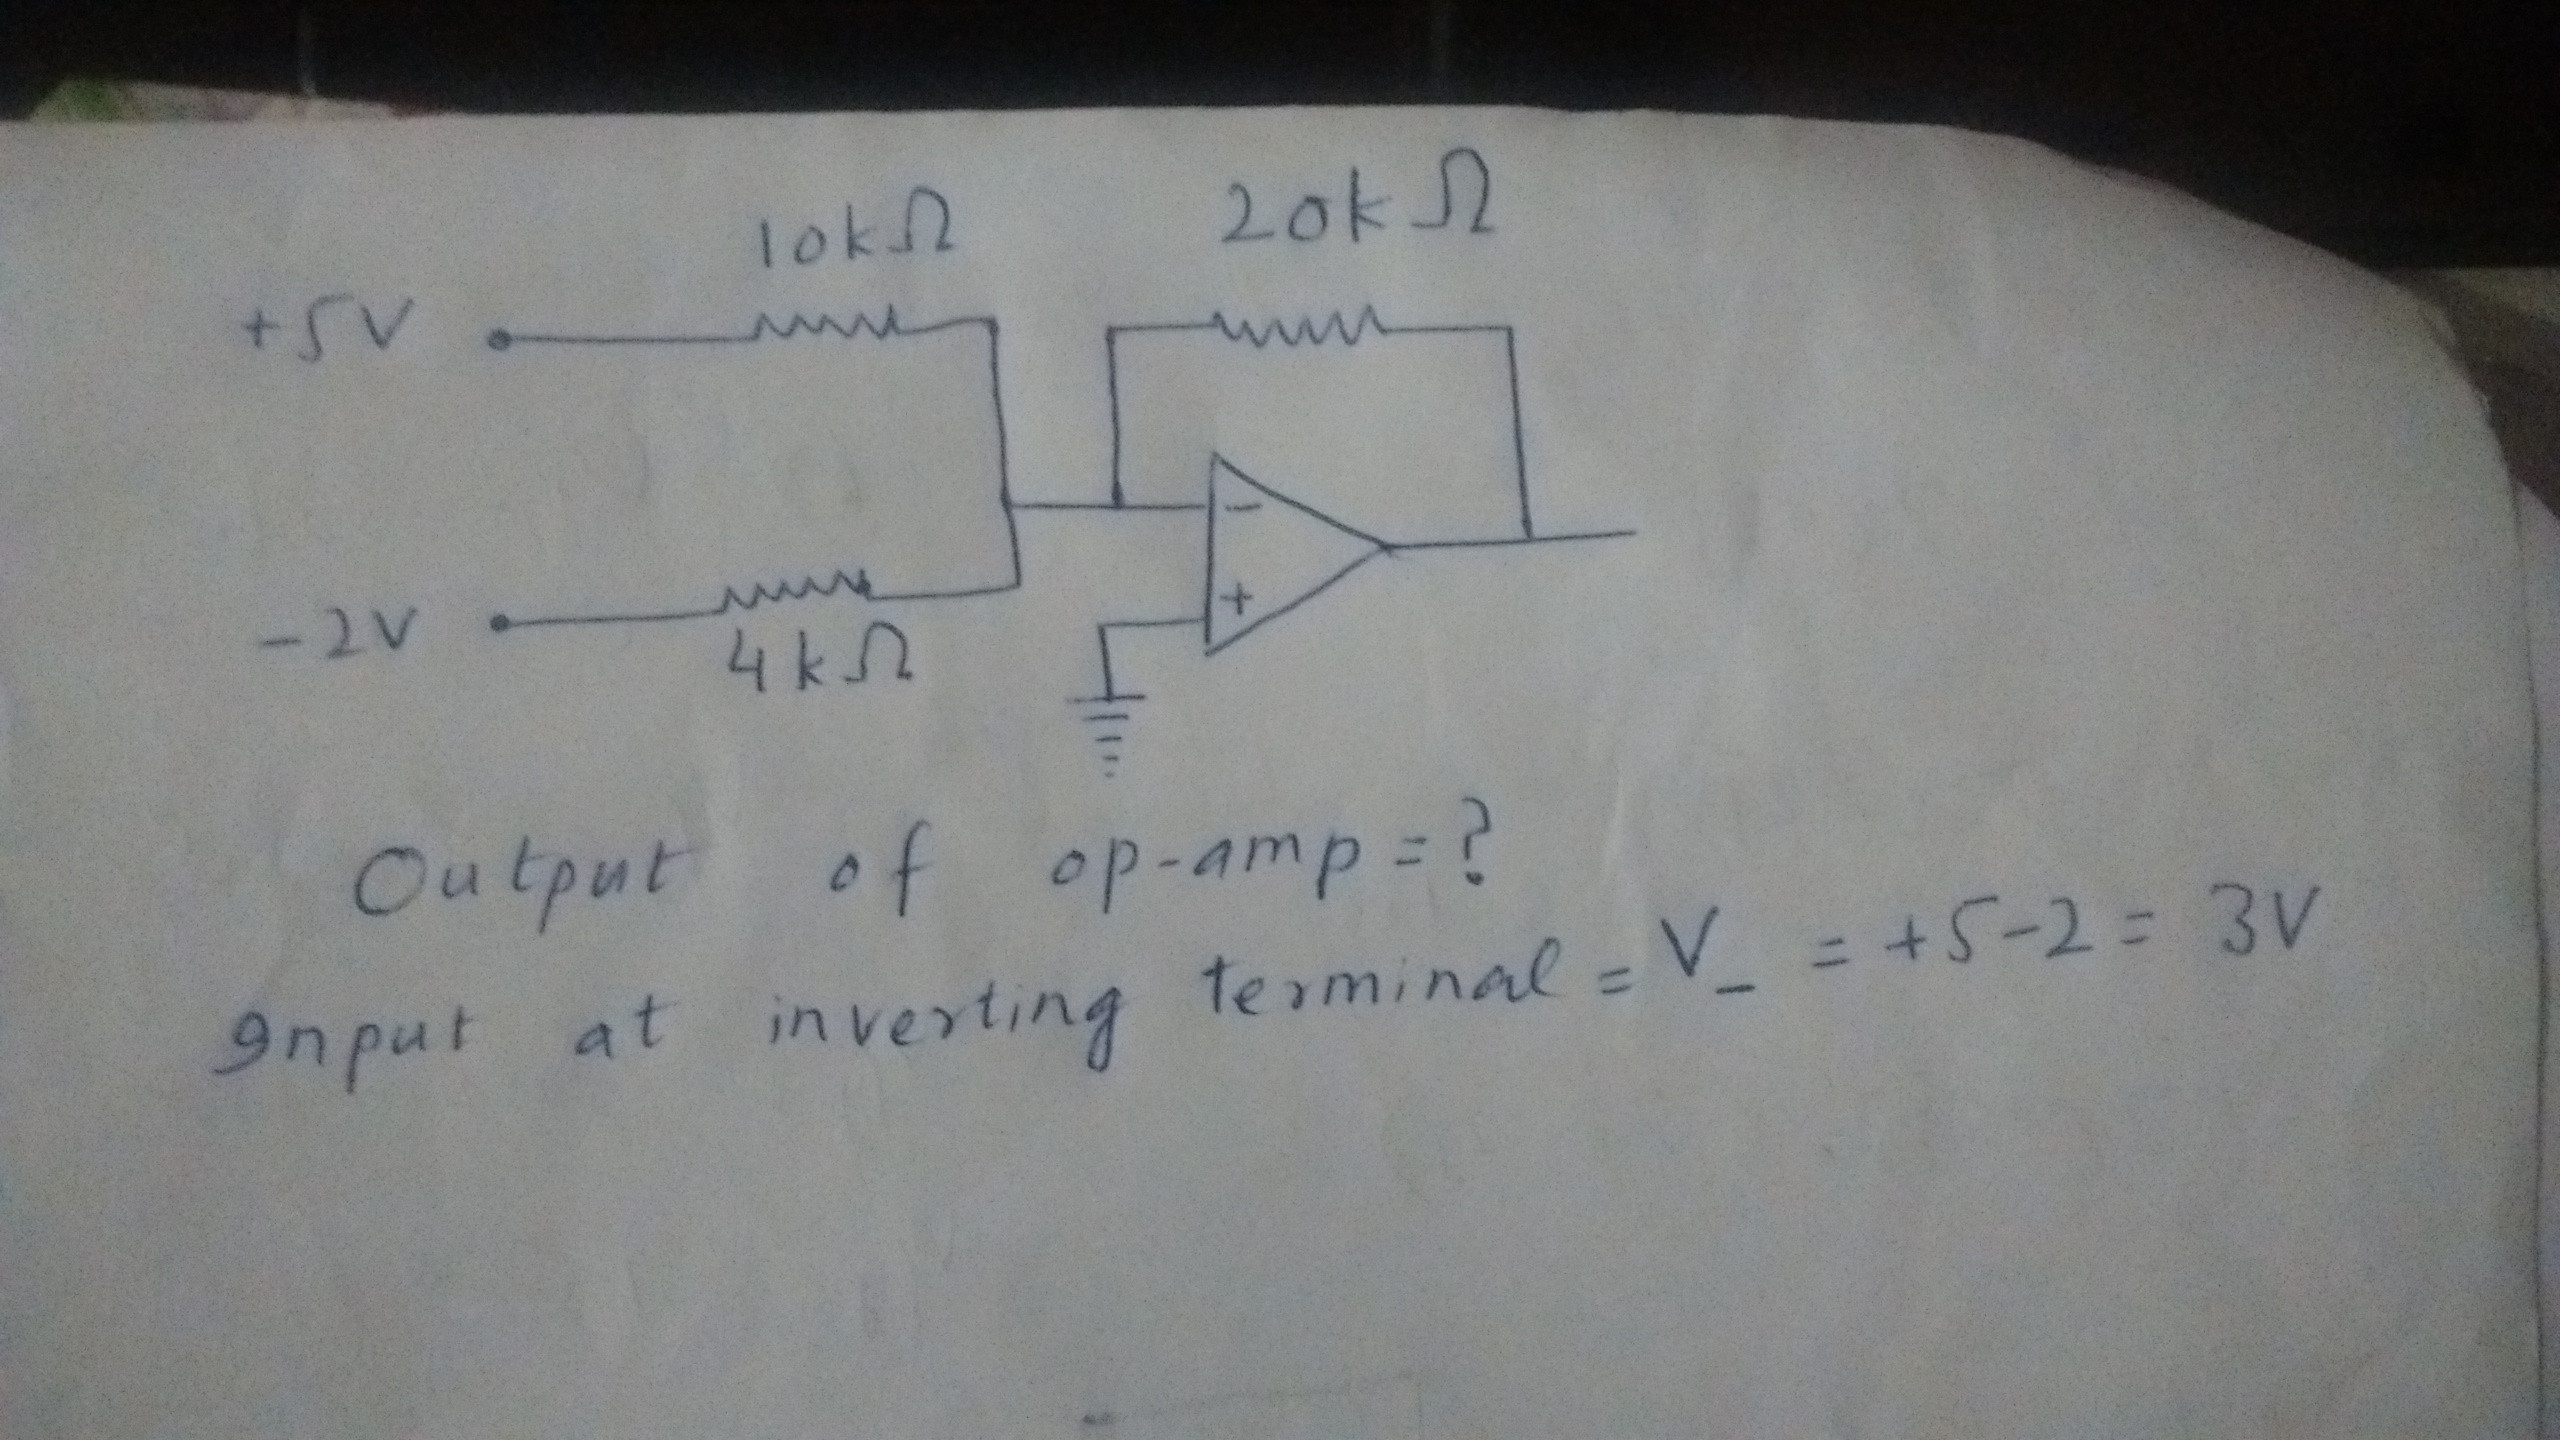 10kΩ 20kΩ
+5V
-
+
-2V
4kΩ
Output of op-amp = ?
Input at inverting terminal = V_ = +5-2 = 3V